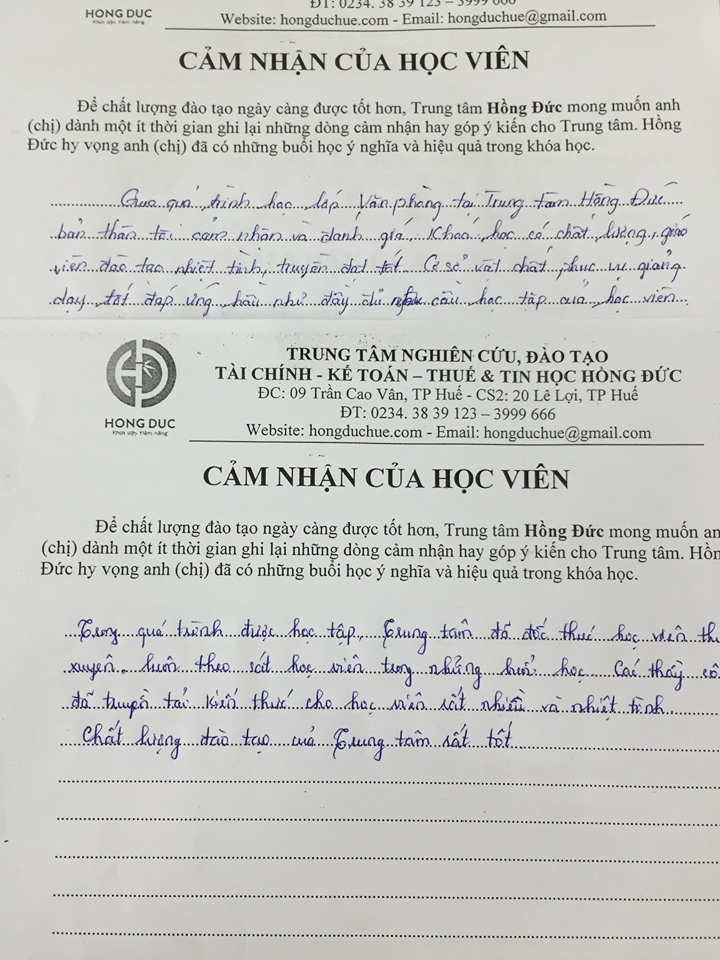 HONG DUC
Khơi dậy tiềm năng
ĐT: 0234. 38 39 123 – 3999 666
Website: hongduchue.com - Email: hongduchue@gmail.com
CẢM NHẬN CỦA HỌC VIÊN
Để chất lượng đào tạo ngày càng được tốt hơn, Trung tâm Hồng Đức mong muốn anh
(chị) dành một ít thời gian ghi lại những dòng cảm nhận hay góp ý kiến cho Trung tâm. Hồng
Đức hy vọng anh (chị) đã có những buổi học ý nghĩa và hiệu quả trong khóa học.
Qua quá trình học lớp Văn phòng tại Trung tâm Hồng Đức
bản thân tôi cảm nhận và đánh giá, Khoá học có chất lượng, giáo
viên đào tạo nhiệt tình, truyền đạt tốt. Cơ sở vật chất phục vụ giảng
dạy tốt đáp ứng hầu như đầy đủ cầu học tập của học viên
TRUNG TÂM NGHIÊN CỨU, ĐÀO TẠO
TÀI CHÍNH - KẾ TOÁN – THUẾ & TIN HỌC HỒNG ĐỨC
ĐC: 09 Trần Cao Vân, TP Huế - CS2: 20 Lê Lợi, TP Huế
ĐT: 0234. 38 39 123 – 3999 666
HONG DUC
Khơi dậy tiềm năng
Website: hongduchue.com - Email: hongduchue@gmail.com
CẢM NHẬN CỦA HỌC VIÊN
Để chất lượng đào tạo ngày càng được tốt hơn, Trung tâm Hồng Đức mong muốn an
(chị) dành một ít thời gian ghi lại những dòng cảm nhận hay góp ý kiến cho Trung tâm. Hồn
Đức hy vọng anh (chị) đã có những buổi học ý nghĩa và hiệu quả trong khóa học.
Trong quá trình được học tập, Trung tâm đã đốc thúc học viên th
xuyên, luôn theo sát học viên trong những buổi học. Các thầy cô
đã truyền tải kiến thức cho học viên rất nhiều và nhiệt tình
Chất lượng đào tạo của Trung tâm rất tốt